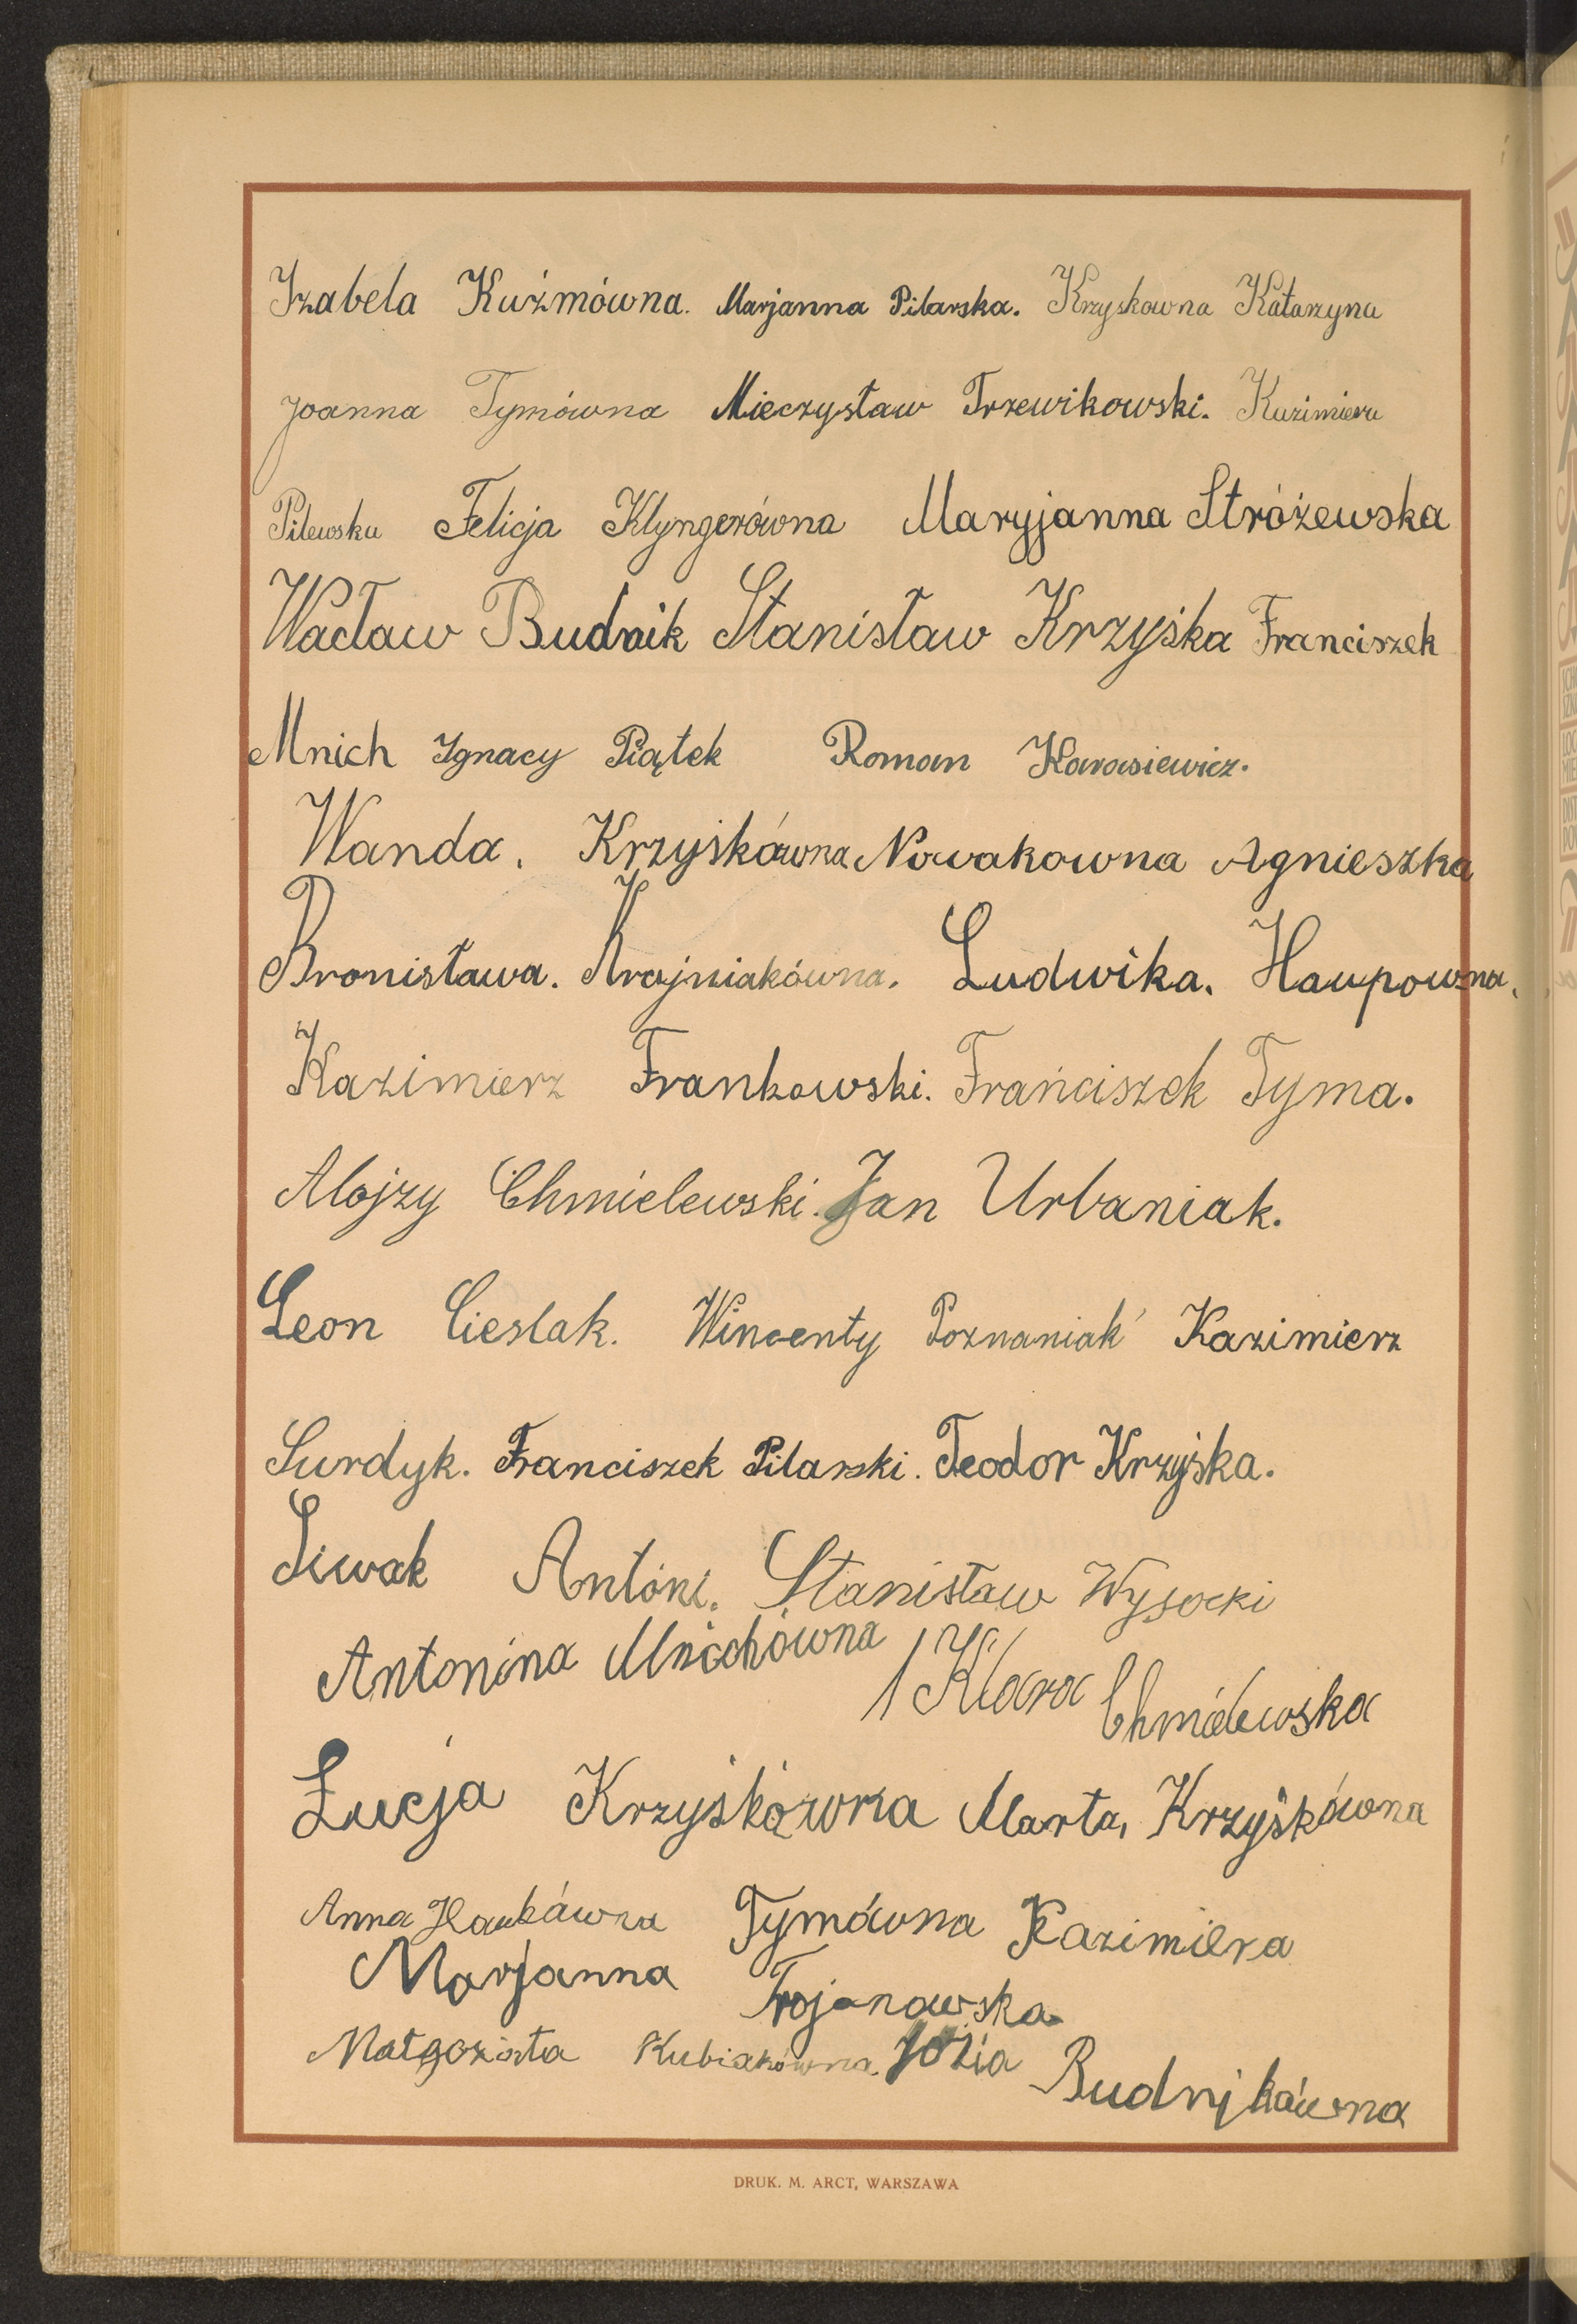 Izabela Kuźmówna. Marjanna Pilarska. Krzyskowna Katarzyna
Joanna Tymówna Mieczysław Trzewikowski. Kazimiera
Pilewska Felicja Klyngerówna Maryjanna Stróżewska
Wacław Budnik Stanisław Krzyśka Franciszek
Mnich Ignacy Piątek Roman Karasiewicz.
Wanda. Krzyśkówna Nowakowna Agnieszka
Bronisława. Krajniakówna. Ludwika. Haupowna.
Kazimierz Frankowski. Franciszek Tyma.
Alojzy Chmielewski. Jan Urbaniak.
Leon Cieslak. Wincenty Poznaniak Kazimierz
Surdyk. Franciszek Pilarski. Teodor Krzyśka.
Siwak Antoni. Stanisław Wysocki
Antonina Mnichówna Klara Chmielewska
Łucja Krzyśkówna Marta, Krzyśkówna
Anna Tymówna Kazimiera
Marjanna Trojanowska
Małgorzata Kubiakówna. Józia Budnikówna
DRUK. M. ARCT, WARSZAWA